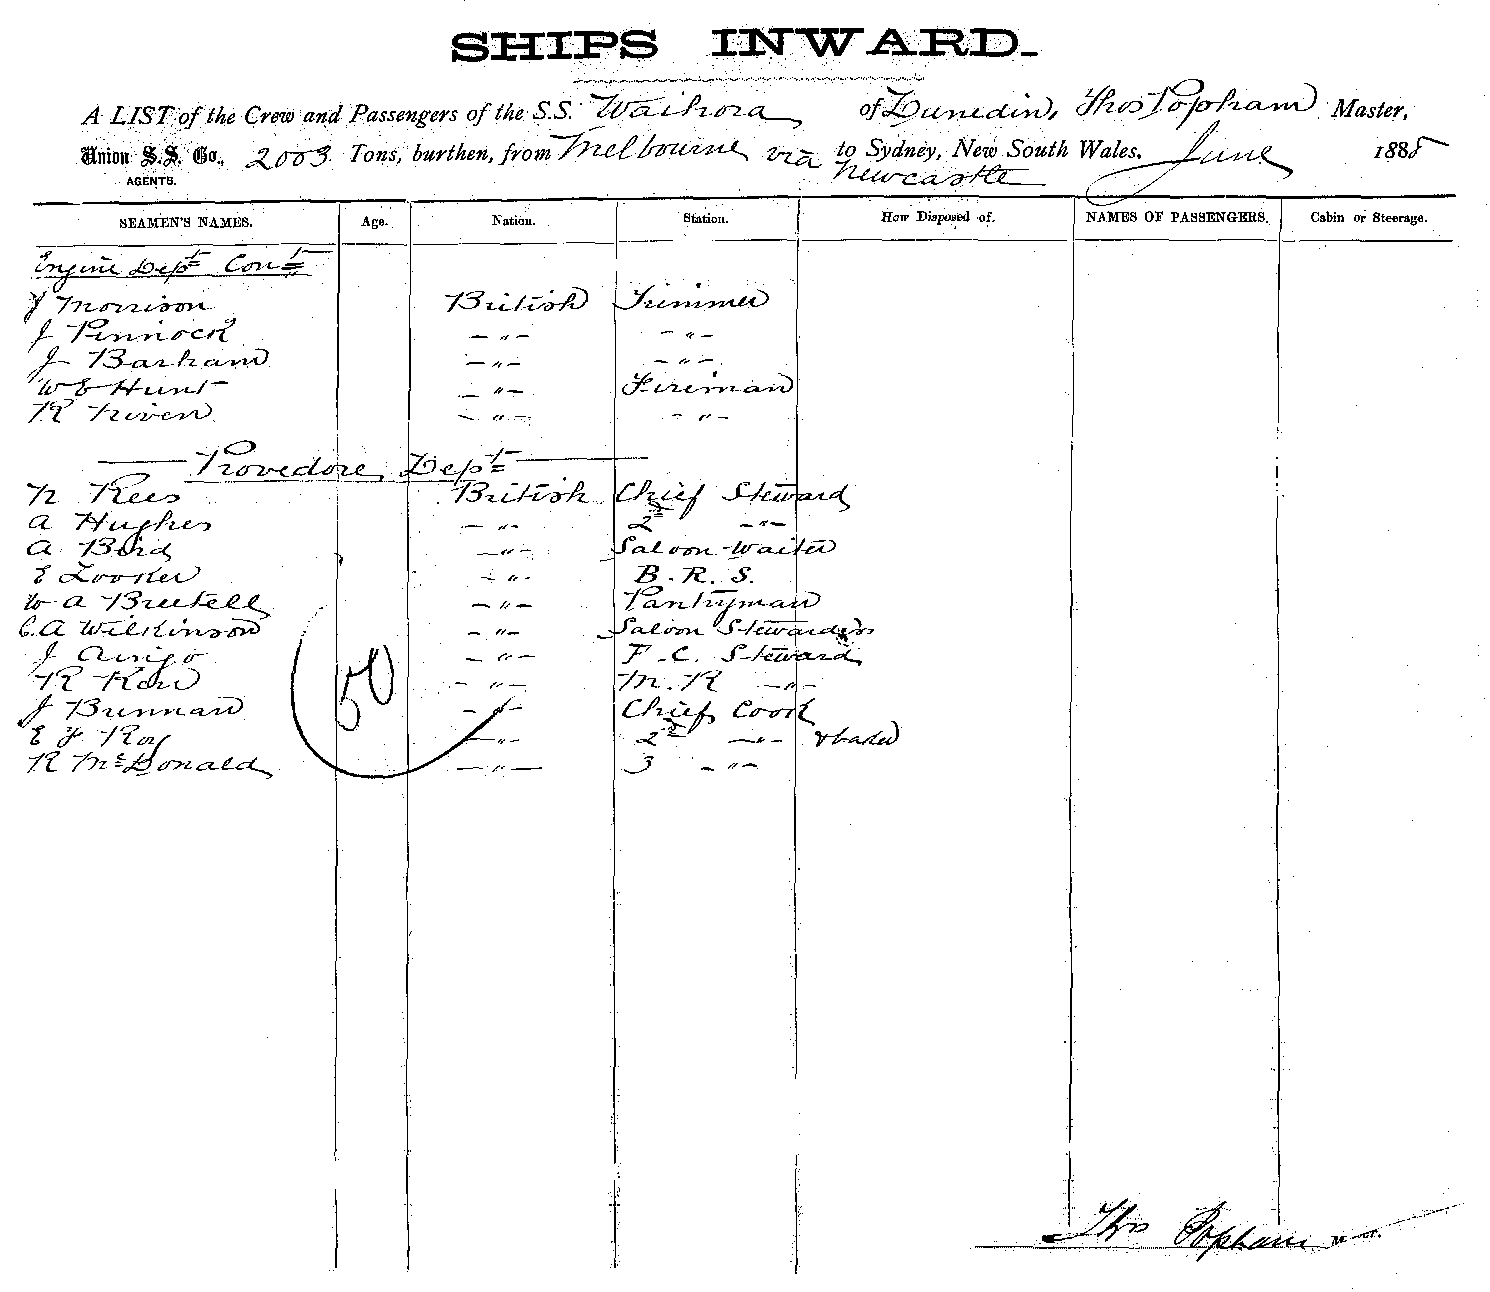 SHIPS INWARD.
A LIST of the Crew and Passengers of the S.S. Waihora of Dunedin, Thos Popham Master,
Union S.S. Co., 2003 Tons, burthen, from Melbourne via to Sydney, New South Wales. June 1885
AGENTS. Newcastle
SEAMEN'S NAMES. Age. Nation. Station. How Disposed of. NAMES OF PASSENGERS. Cabin or Steerage.
Engine Dept Cont
J Morrison British Trimmer
J Pinnock " "
J Barham " "
W E Hunt " Fireman
R Niven " "
Provedore Dept
N Rees British Chief Steward
A Hughes " 2nd "
A Bird " Saloon Waiter
E Looker " B. R. S.
W A Brutell " Pantryman
C. A Wilkinson " Saloon Stewardess
J " F. C. Steward
R Kerr " M. R "
J Brennan " Chief Cook
E J Roy " 2nd " & baker
R McDonald " 3 "
50
Thos Popham